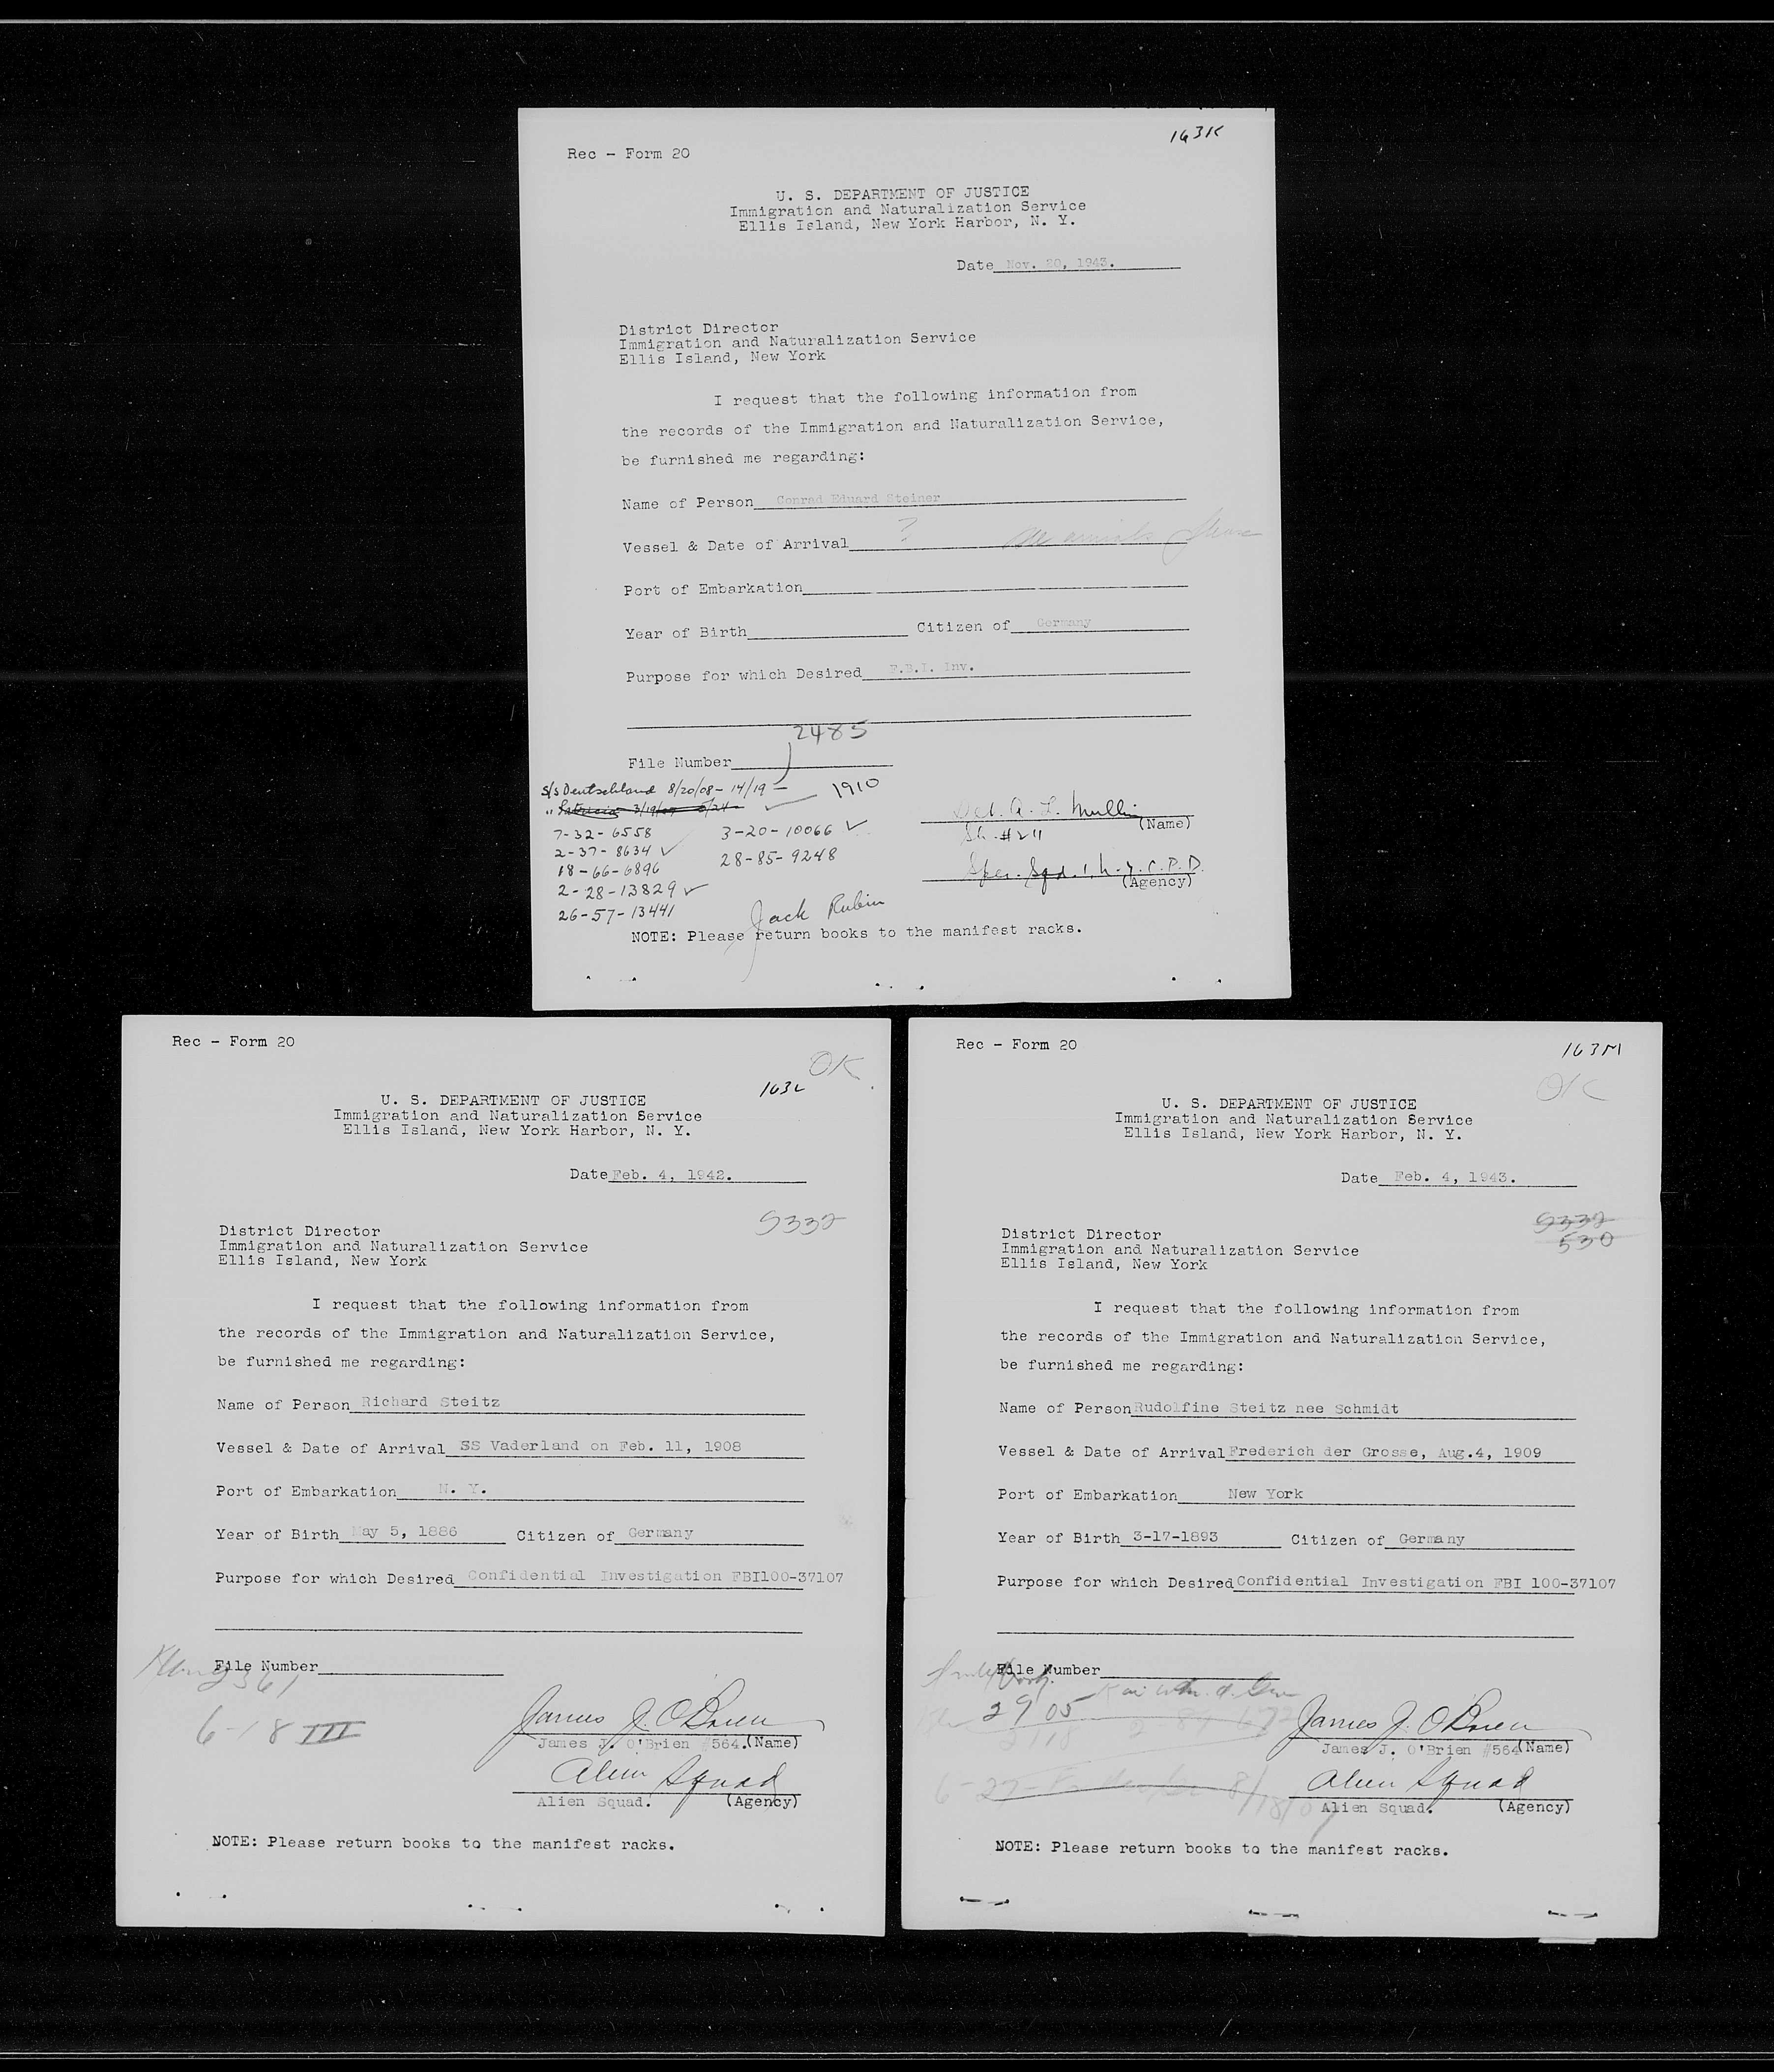 163K
Rec - Form 20
U. S. DEPARTMENT OF JUSTICE
Immigration and Naturalization Service
Ellis Island, New York Harbor, N. Y.
Date Nov. 20, 1943.
District Director
Immigration and Naturalization Service
Ellis Island, New York
I request that the following information from
the records of the Immigration and Naturalization Service,
be furnished me regarding:
Name of Person Conrad Eduard Steiner
Vessel & Date of Arrival ? All arrivals please
Port of Embarkation
Year of Birth Citizen of Germany
Purpose for which Desired F.B.I. Inv.
2485
File Number
S/S Deutschland 8/20/08 - 14/19 - 1910
7-32-6558 3-20-10066 ✓
2-37-8634 ✓ 28-85-9248
18-66-6896
2-28-13829 ✓
26-57-13441
Det. A. L. Mullin
(Name)
Sh. #211
Spec. Sqd. 1, N.Y.C.P.D.
(Agency)
Jack Rubin
NOTE: Please return books to the manifest racks.
Rec - Form 20
OK
163L
U. S. DEPARTMENT OF JUSTICE
Immigration and Naturalization Service
Ellis Island, New York Harbor, N. Y.
Date Feb. 4, 1942.
5332
District Director
Immigration and Naturalization Service
Ellis Island, New York
I request that the following information from
the records of the Immigration and Naturalization Service,
be furnished me regarding:
Name of Person Richard Steitz
Vessel & Date of Arrival SS Vaderland on Feb. 11, 1908
Port of Embarkation N. Y.
Year of Birth May 5, 1886 Citizen of Germany
Purpose for which Desired Confidential Investigation FBI100-37107
File Number
6-18 III
James J. O'Brien
James J. O'Brien #564. (Name)
Alien Squad
Alien Squad. (Agency)
NOTE: Please return books to the manifest racks.
Rec - Form 20
163M
OK
U. S. DEPARTMENT OF JUSTICE
Immigration and Naturalization Service
Ellis Island, New York Harbor, N. Y.
Date Feb. 4, 1943.
5332
530
District Director
Immigration and Naturalization Service
Ellis Island, New York
I request that the following information from
the records of the Immigration and Naturalization Service,
be furnished me regarding:
Name of Person Rudolfine Steitz nee Schmidt
Vessel & Date of Arrival Frederich der Grosse, Aug.4, 1909
Port of Embarkation New York
Year of Birth 3-17-1893 Citizen of Germany
Purpose for which Desired Confidential Investigation FBI 100-37107
File Number
2905
James J. O'Brien
James J. O'Brien #564 (Name)
Alien Squad
Alien Squad. (Agency)
NOTE: Please return books to the manifest racks.